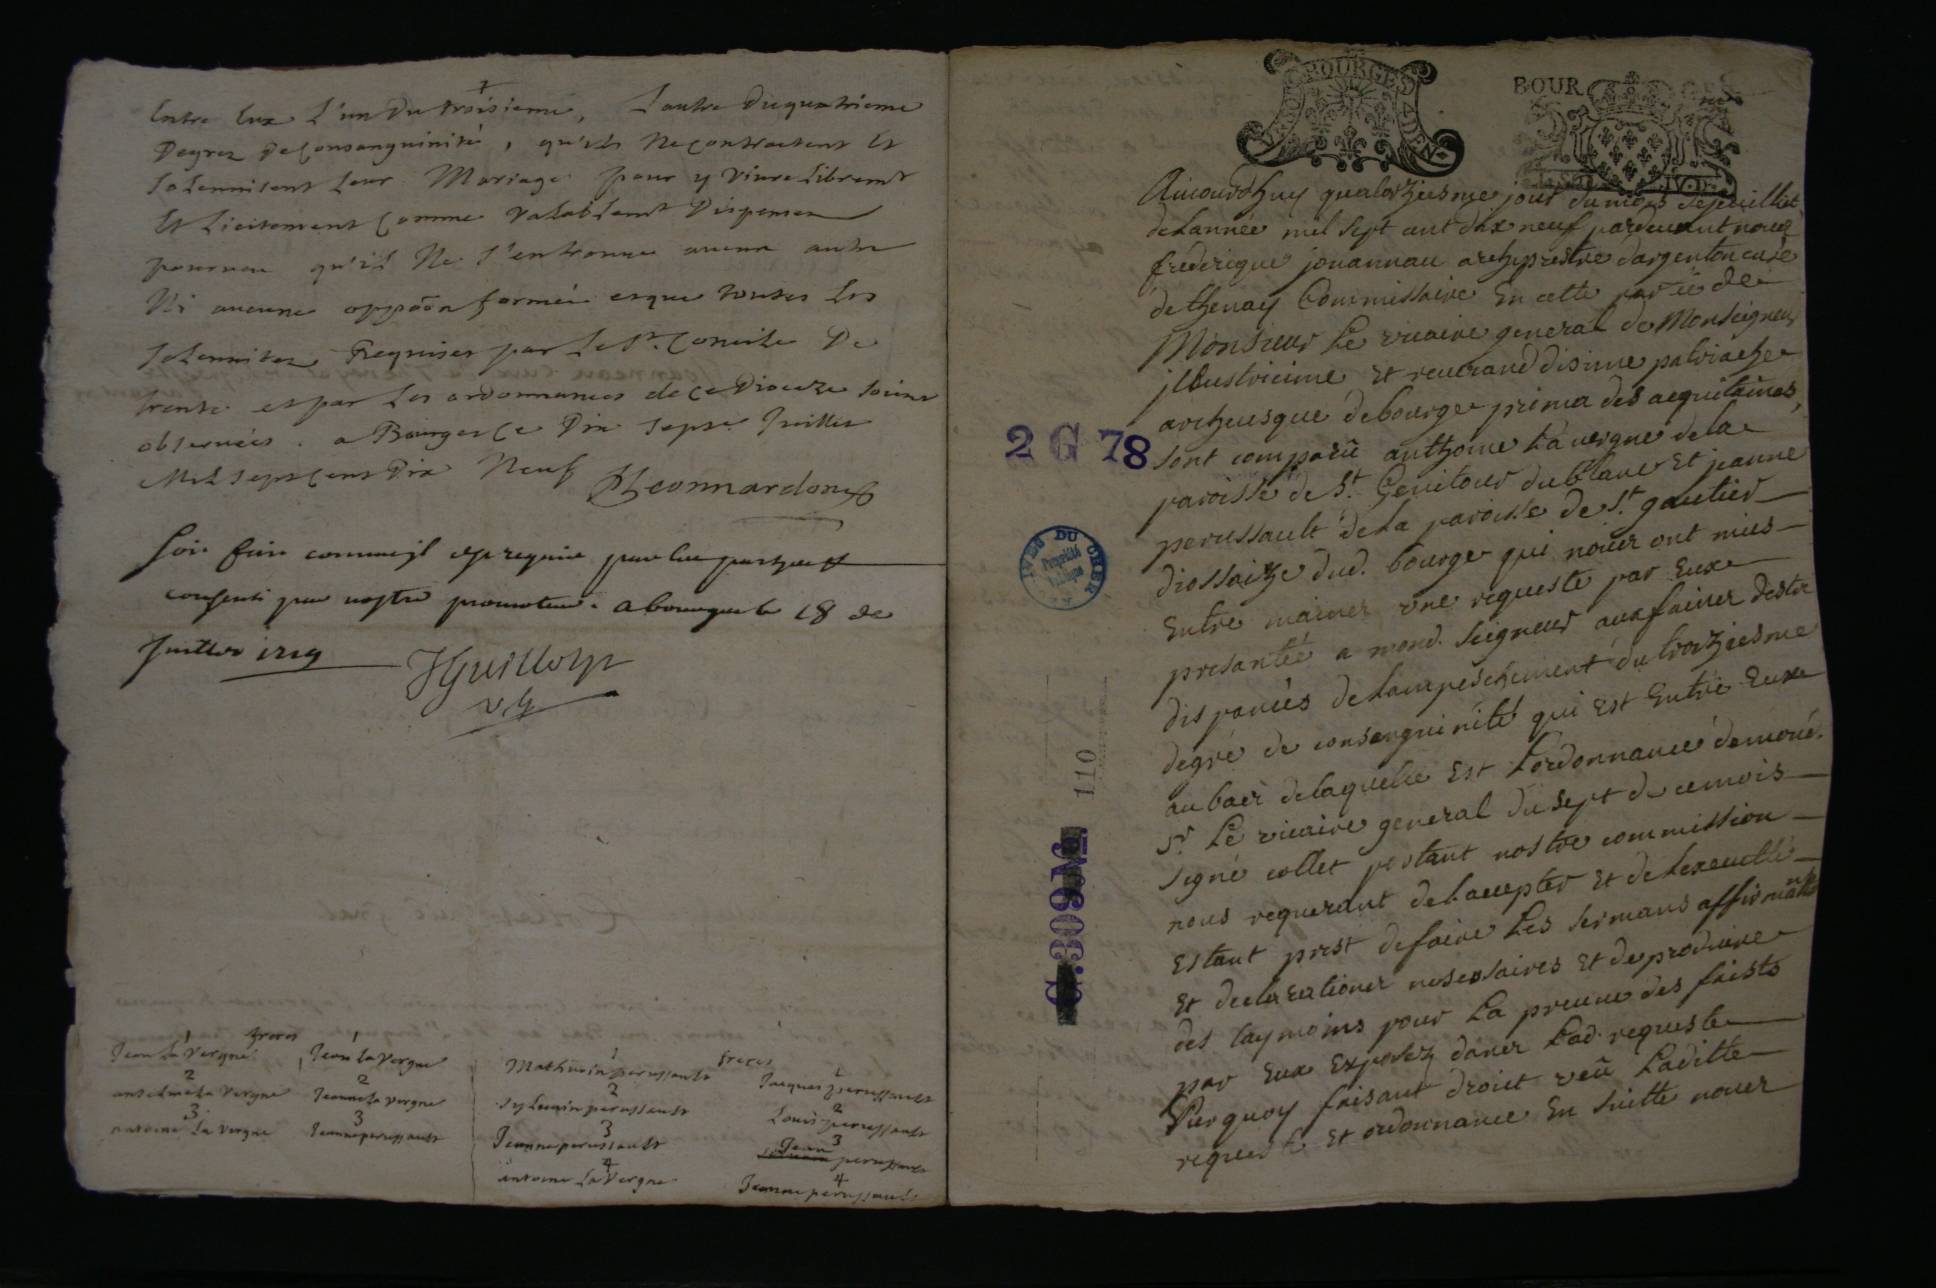 Entre Eux L'un Du troisieme, L'autre Du quatrieme
Degrez De Consanguinité, qu'ils Ne contractent Et
Solennisent Leur Mariage pour y Vivre Libremt
Et Licitement Comme Valablemt Dispensez
pourveu qu'il Ne s'entrouve aucun autre
Ni aucune oppoõn formée et que toutes Les
Solennitez Requises par Le St. Concile De
trente et par Les ordonnances de Ce Dioceze soient
observées. a Bourges Ce Dix Sept Juillet
Mil Sept Cent Dix Neuf
Leonnardon
Soit fait comme il est requis par les parties et
consenti par nostre promoteur. a bourges le 18 de
Juillet 1719
JGuillory
v.g
freres
1 1
Jean La Vergne Jean La Vergne
2 2
antoine La Vergne Jeanne La Vergne
3 3
antoine La Vergne Jeanne perussault
freres
1 1
Mathurin perussault Jacques perussault
2 2
Sylvain perussault Louis perussault
3 3
Jeanne perussault Jean perussault
4 4
antoine La Vergne Jeanne perussault
BOURGES
BOUR
2 G 78
ARCHIVES DU CHER
Propriété
Publique
110
G.309 No.
Aujourd'huy quatorziesme jour du mois de jeuilliet
de Lannée mil sept cent dix neuf pardevant nous
frederique jouannau archiprestre dargenton curé
de thenay Commissaire En cette partie de
Monsieur Le vicaire general de Monseigneur
jllustricime Et reverand disime patriache
archevesque de bourge prima des aequitaines,
sont comparû anthoine Lavergne de la
paroisse de St. Genitour du blanc Et jeanne
perussault de La paroisse de St. gaultier
diossaize dud. bourge qui nous ont mies
Entre mainer une requeste par Euxe
presantée a mond. seigneur aux fainer destre
dispancés de Lampeschement du troiziesme
degré de consenguinité qui Est Entre Euxe
au bas de laquelle Est Lordonnance de mond.
Sr. Le vicaire general du sept de ce mois
signé collet portant nostre commission
nous requerant de Laccepter Et de Lexecutter
Estant prest de faire Les sermans affirmations
Et declarationer nesessaires Et de produire
des taymoins pour La preuve des faists
par Euxe Exposez daner Lad. requeste
Surquoy faisant droict veû Laditte
requeste Et ordonnance En suitte nouer